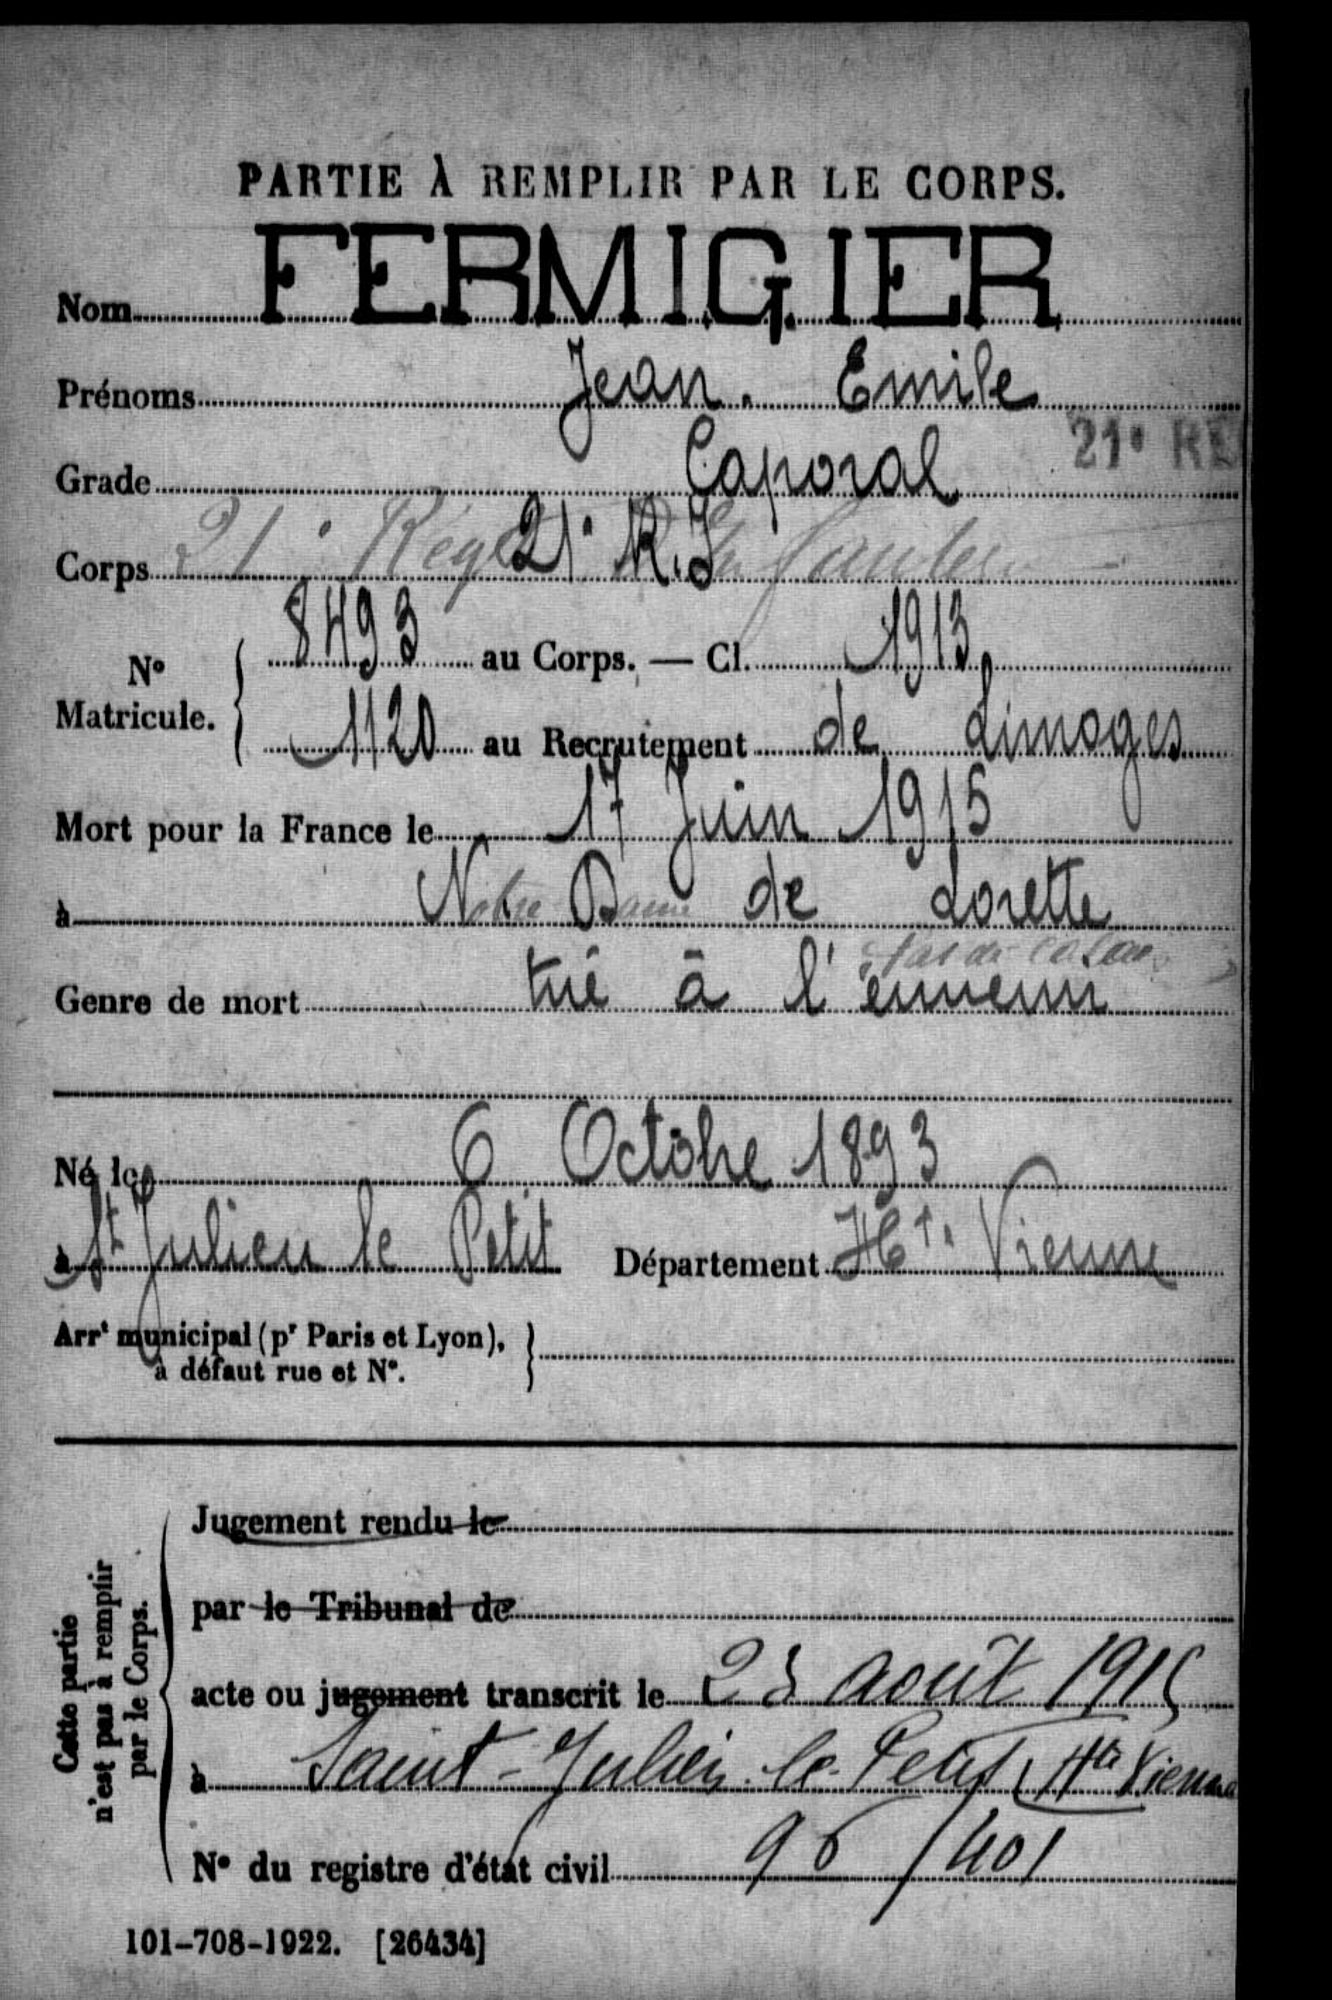 PARTIE À REMPLIR PAR LE CORPS.
Nom FERMIGIER
Prénoms Jean. Emile
Grade Caporal 21e RE
Corps 21e R.I
N° Matricule. 8493 au Corps. — Cl. 1913
1120 au Recrutement de Limoges
Mort pour la France le 17 Juin 1915
à Notre Dame de Lorette
Pas de Calais
Genre de mort tué à l'ennemi
Né le 6 Octobre 1893
à St Julien le Petit Département Hte Vienne
Arrt municipal (pr Paris et Lyon),
à défaut rue et N°.
Cette partie
n'est pas à remplir
par le Corps.
Jugement rendu le
par le Tribunal de
acte ou jugement transcrit le 23 août 1915
à Saint-Julien-le-Petit (Hte Vienne
N° du registre d'état civil 96/401
101-708-1922. [26434]